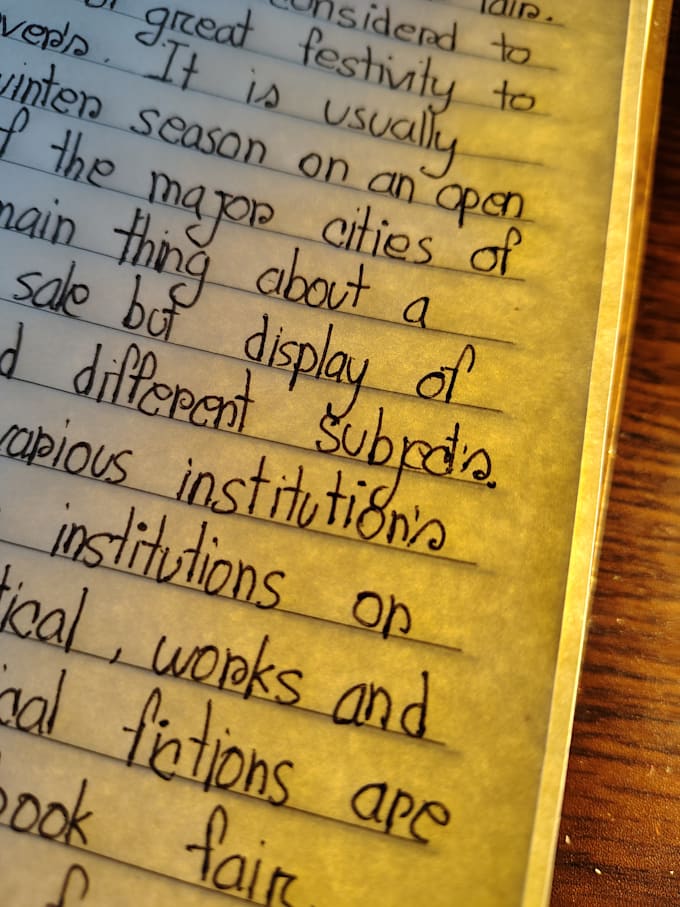 fair.
considerd to
great festivity to
It is usually
season on an open
the major cities of
main thing about a
sale but display of
different subjects.
various institution's
institutions or
, works and
fictions are
book fair